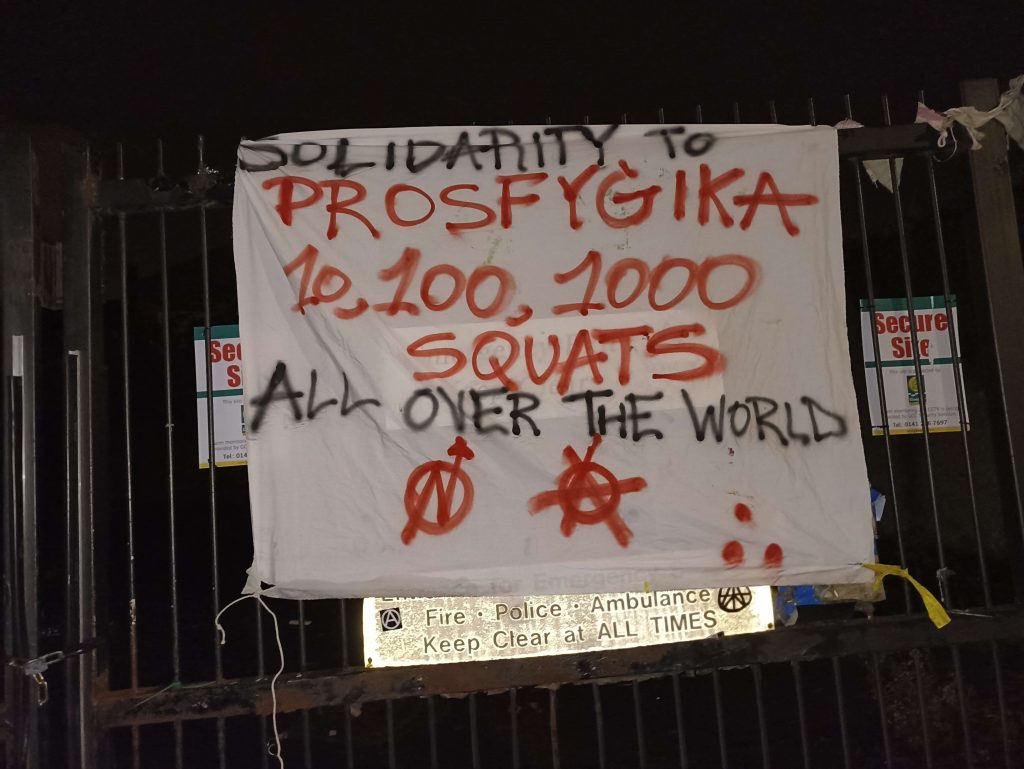 SOLIDARITY TO
PROSFYGIKA
10, 100, 1000
SQUATS
ALL OVER THE WORLD
Secure
Site
Tel: 0141
Fire · Police · Ambulance
Keep Clear at ALL TIMES